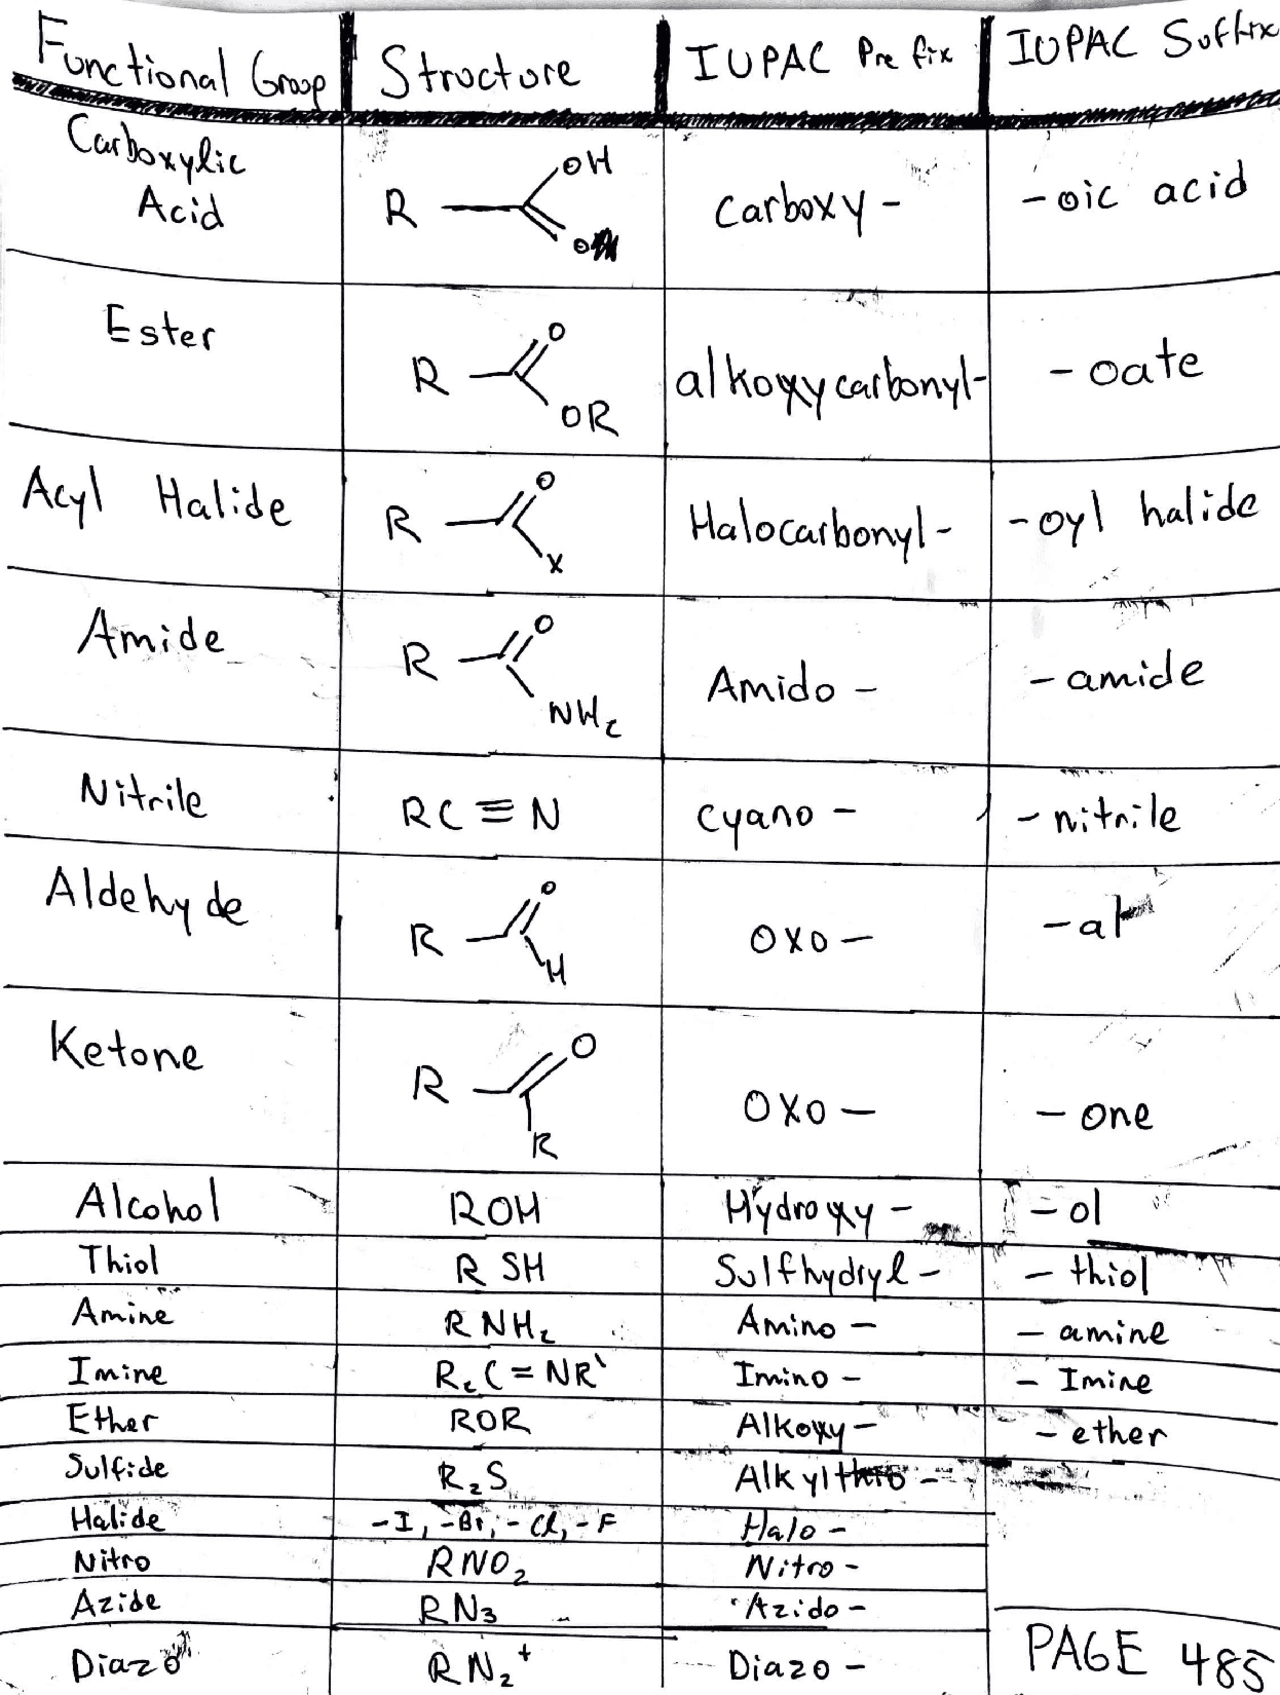 Functional Group Structure IUPAC Prefix IUPAC Suffix
Carboxylic
Acid R OH O carboxy - - oic acid
Ester R O OR alkoxycarbonyl- - oate
Acyl Halide R O X Halocarbonyl - - oyl halide
Amide R O NH2 Amido - - amide
Nitrile RC≡N cyano - - nitrile
Aldehyde R O H oxo - - al
Ketone R O R oxo - - one
Alcohol ROH Hydroxy - - ol
Thiol R SH Sulfhydryl - - thiol
Amine R NH2 Amino - - amine
Imine R2C=NR' Imino - - Imine
Ether ROR Alkoxy - - ether
Sulfide R2S Alkylthio -
Halide -I, -Br, -Cl, -F Halo -
Nitro RNO2 Nitro -
Azide RN3 Azido -
Diazo RN2+ Diazo - PAGE 485